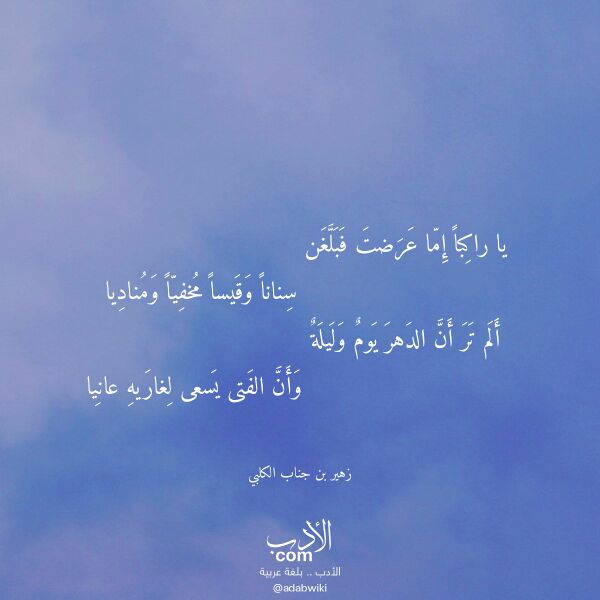 يا راكِباً إِمّا عَرَضتَ فَبَلَّغَن
سِناناً وَقَيساً مُخفِيّاً وَمُنادِيا
أَلَم تَرَ أَنَّ الدَهرَ يَومٌ وَلَيلَةٌ
وَأَنَّ الفَتى يَسعى لِغارَيهِ عانِيا
زهير بن جناب الكلبي
الأدب
com
الأدب .. بلغة عربية
@adabwiki